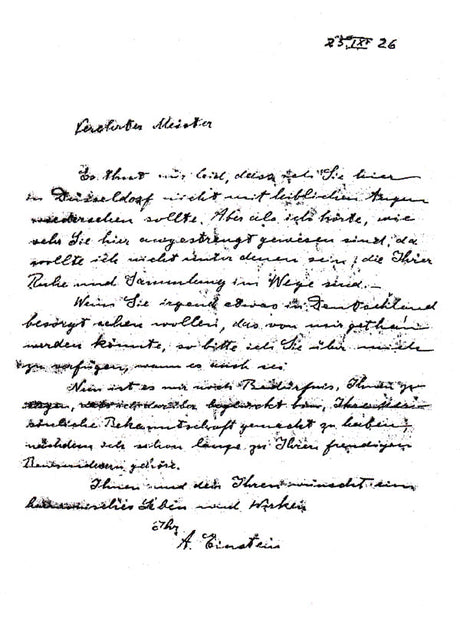 25 IX 26
Verehrter Meister
Es thut mir leid, dass ich Sie hier
in Düsseldorf nicht mit leiblichen Augen
wiedersehen sollte. Aber als ich hörte, wie
sehr Sie hier angestrengt gewesen sind, da
wollte ich nicht unter denen sein, die Ihrer
Ruhe und Sammlung im Wege sind.
Wenn Sie irgend etwas in Deutschland
besorgt sehen wollen, das von mir gethan
werden könnte, so bitte ich Sie über mich
zu verfügen, wann es auch sei.
Nun ist es mir noch Bedürfnis, Ihnen zu
sagen, darüber beglückt bin, Ihre per-
sönliche Bekanntschaft gemacht zu haben,
nachdem ich schon lange zu Ihren freudigen
Bewunderern gehöre.
Ihnen und den Ihren wünscht ein
harmonisches Leben und Wirken
Ihr
A. Einstein